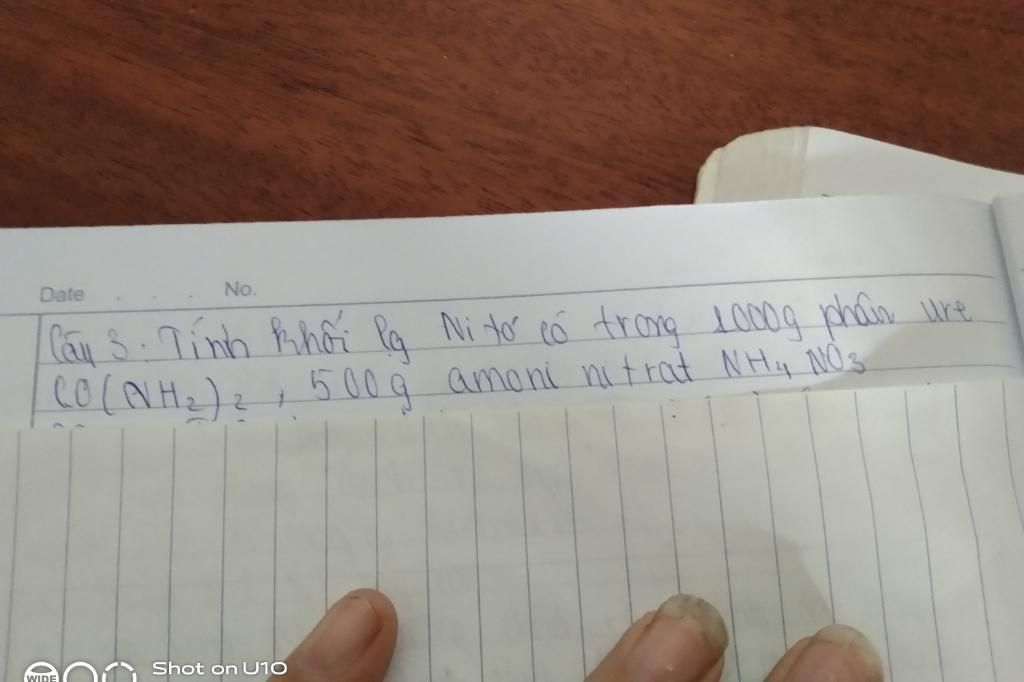 Date . . . No.
Câu 3: Tính khối lg Nitơ có trong 1000g phân ure
CO(NH2)2, 500g amoni nitrat NH4NO3
WIDE Shot on U10